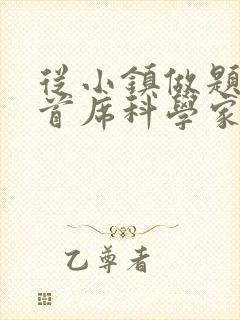 從小鎮做題
首席科學家
乙尊者